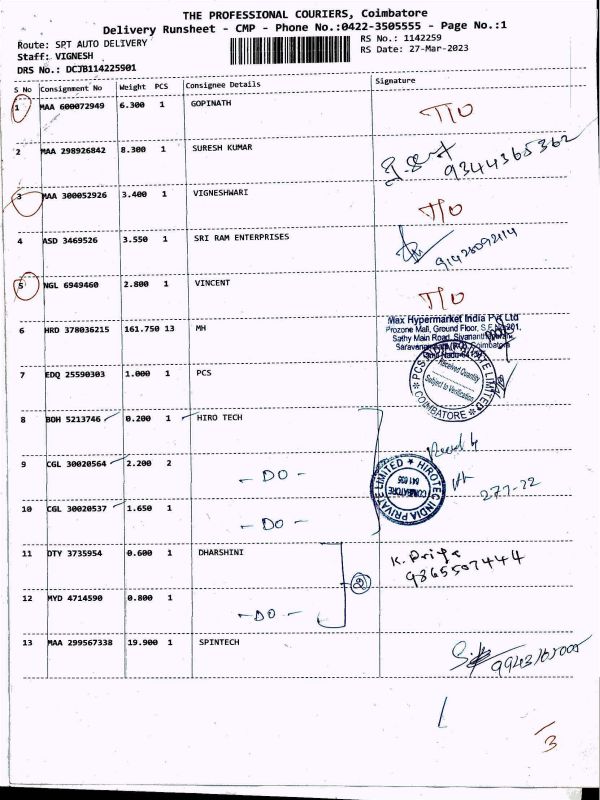 THE PROFESSIONAL COURIERS, Coimbatore
Delivery Runsheet - CMP - Phone No.:0422-3505555 - Page No.:1
Route: SPT AUTO DELIVERY
RS No.: 1142259
Staff: VIGNESH
RS Date: 27-Mar-2023
DRS No.: DCJB114225901
S No Consignment No Weight PCS Consignee Details Signature
1 MAA 600072949 6.300 1 GOPINATH T/O
2 MAA 298926842 8.300 1 SURESH KUMAR 9344365362
3 MAA 300052926 3.400 1 VIGNESHWARI T/O
4 ASD 3469526 3.550 1 SRI RAM ENTERPRISES
5 NGL 6949460 2.800 1 VINCENT T/O
Max Hypermarket India Pvt Ltd
6 HRD 378036215 161.750 13 MH
Prozone Mall, Ground Floor,
Sathy Main Road,
7 EDQ 25590303 1.000 1 PCS
PRIVATE LIMITED
Received Quantity
Subject to Verification
COIMBATORE
8 BOH 5213746 0.200 1 HIRO TECH
9 CGL 30020564 2.200 2 - DO -
HIROTEC INDIA PRIVATE LIMITED
COIMBATORE
641 635
10 CGL 30020537 1.650 1 - DO -
11 DTY 3735954 0.600 1 DHARSHINI
K. Priya
9865507444
2
12 MYD 4714590 0.800 1 - DO -
13 MAA 299567338 19.900 1 SPINTECH
3